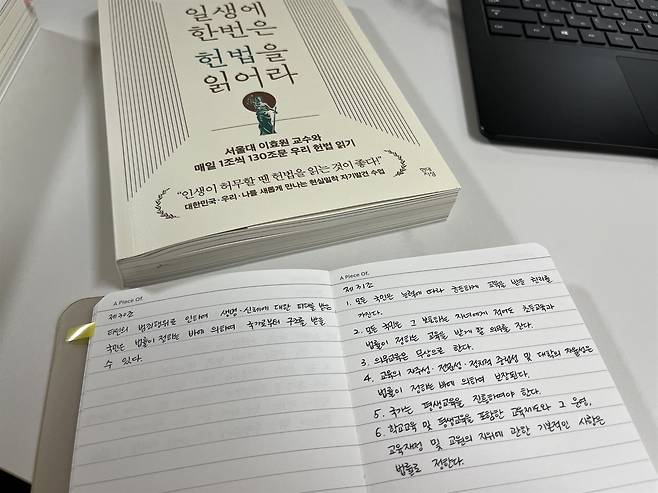 일생에
한번은
헌법을
읽어라
서울대 이효원 교수와
매일 1조씩 130조문 우리 헌법 읽기
“인생이 허무할 땐 헌법을 읽는 것이 좋다!”
대한민국·우리·나를 새롭게 만나는 현실밀착 자기발견 수업
현대
지성
A Piece Of.
제30조
타인의 범죄행위로 인하여 생명·신체에 대한 피해를 받은
국민은 법률이 정하는 바에 의하여 국가로부터 구조를 받을
수 있다.
A Piece Of.
제31조
1. 모든 국민은 능력에 따라 균등하게 교육을 받을 권리를
가진다.
2. 모든 국민은 그 보호하는 자녀에게 적어도 초등교육과
법률이 정하는 교육을 받게 할 의무를 진다.
3. 의무교육은 무상으로 한다.
4. 교육의 자주성·전문성·정치적 중립성 및 대학의 자율성은
법률이 정하는 바에 의하여 보장된다.
5. 국가는 평생교육을 진흥하여야 한다.
6. 학교교육 및 평생교육을 포함한 교육제도와 그 운영,
교육재정 및 교원의 지위에 관한 기본적인 사항은
법률로 정한다.